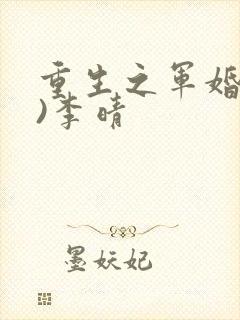 重生之军婚
)李晴
墨妖妃